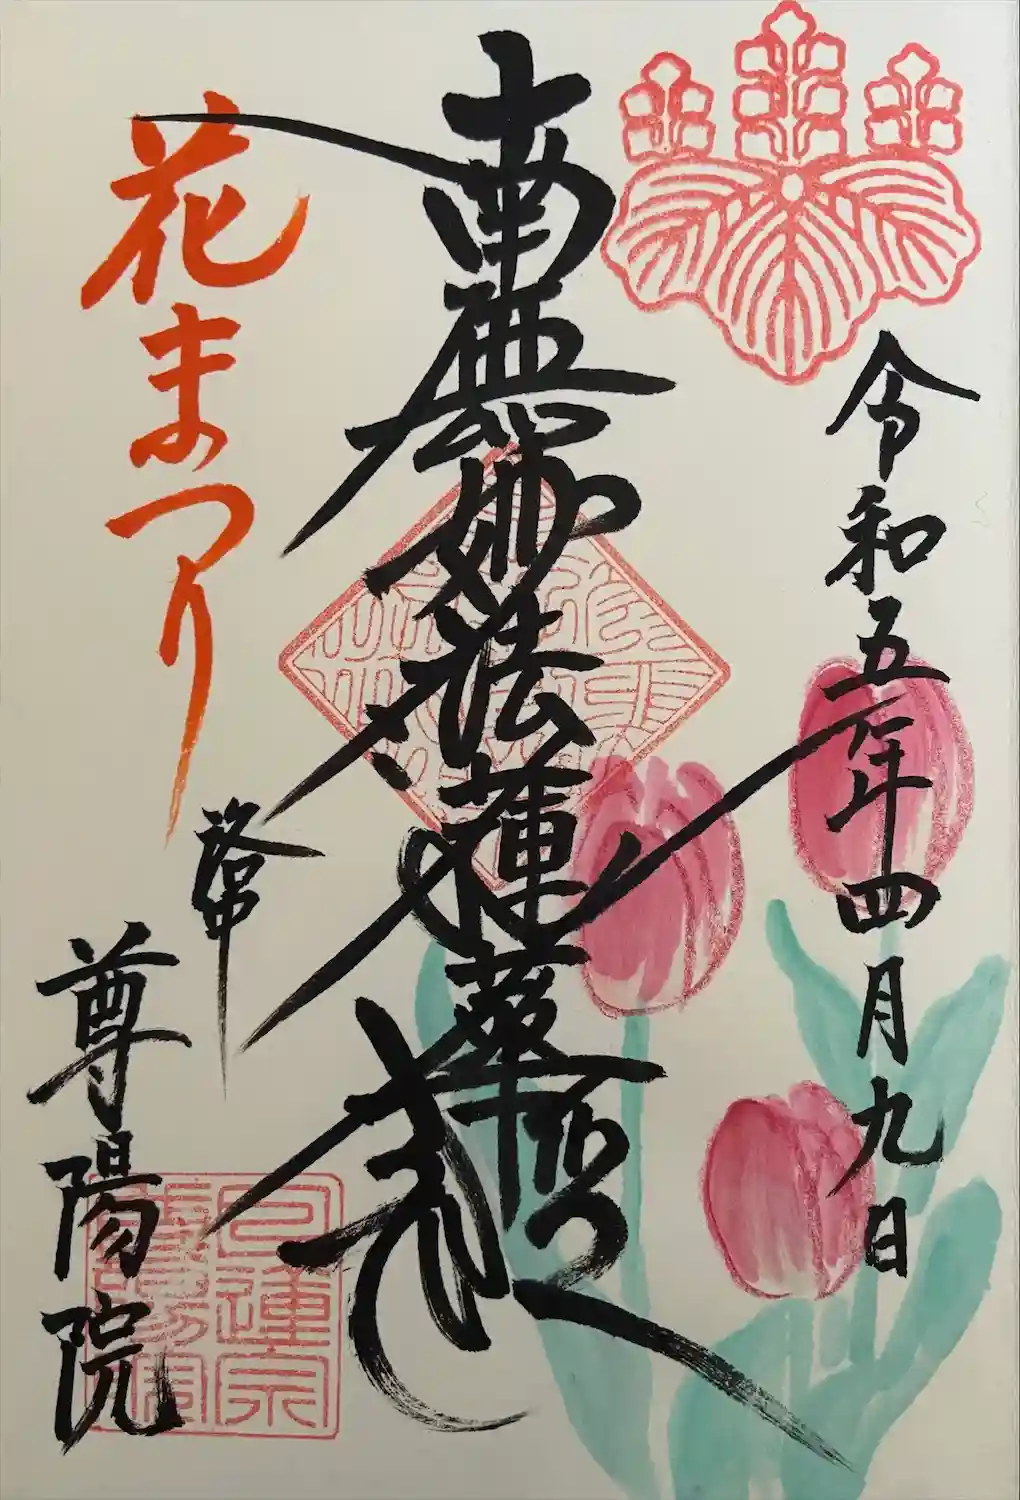 令和五年四月九日
南無妙法蓮華経
花まつり
尊陽院
日蓮宗
尊陽院